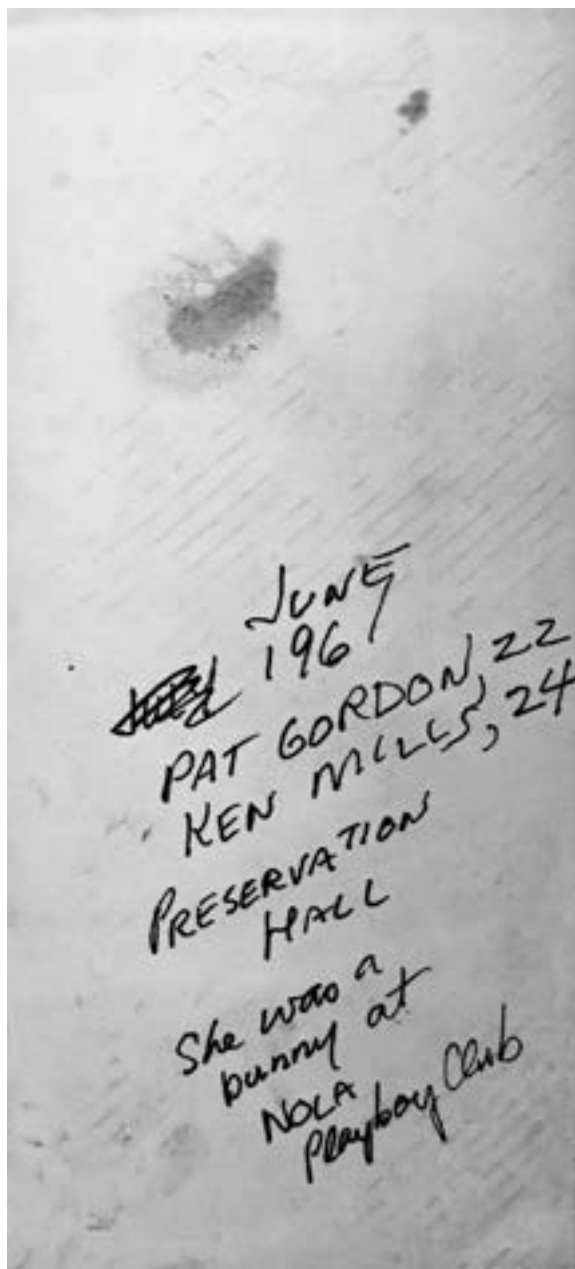 JUNE
1961
PAT GORDON, 22
KEN MILLS, 24
PRESERVATION
HALL
She was a
bunny at
NOLA
Playboy Club